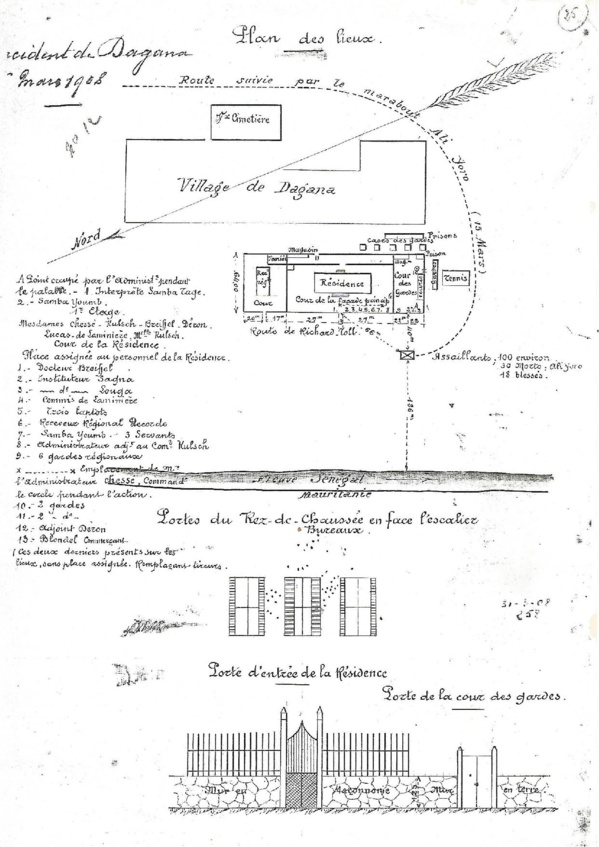 25
Plan des lieux.
ccident de Dagana
mars 1908
No 12
Route suivie par le marabout Ali Yoro (15 Mars)
Nord
Fx Cimetière
Village de Dagana
Prisons
Cases des gardes
Magasin
Résidence
Cour des Gardes
Tennis
Cour
Cour de la façade princip
1 2 3 4 5 6 7 8
Route de Richard-Toll
Assaillants, 100 environ
30 Morts, Ali Yoro
18 blessés.
A Point occupé par l'Administr pendant
le palabre. - 1 Interprète Samba Tage.
2.- Samba Youmb.
1er Etage.
Mesdames Chessé - Hutsch - Breiffel, Déron,
Lucas de Laminière, Mlle Hutsch.
Cour de la Résidence.
Place assignée au personnel de la Résidence.
1.- Docteur Breiffel
2.- Instituteur Sagna
3.- d° Souga
4.- Commis de Laminière
5.- Trois laptots
6.- Receveur Régional
7.- Samba Youmb - 3 Servants
8.- Administrateur adj. au Comt Hutsch
9.- 6 gardes régionaux
x x Emplacement de Mr
l'Administrateur Chessé, Commandt
le cercle pendant l'action.
10.- 2 gardes
11.- 2 d°
12.- Adjoint Déron
13.- Blondel Commerçant
(Ces deux derniers présents sur les
lieux, sans place assignée. Remplaçans-tireurs.
Fleuve Sénégal
Mauritanie
Portes du Rez-de-Chaussée en face l'escalier
Bureaux.
31-3-08
258
Porte d'entrée de la Résidence
Porte de la cour des gardes.
Mur en Maçonnerie
Mur en terre